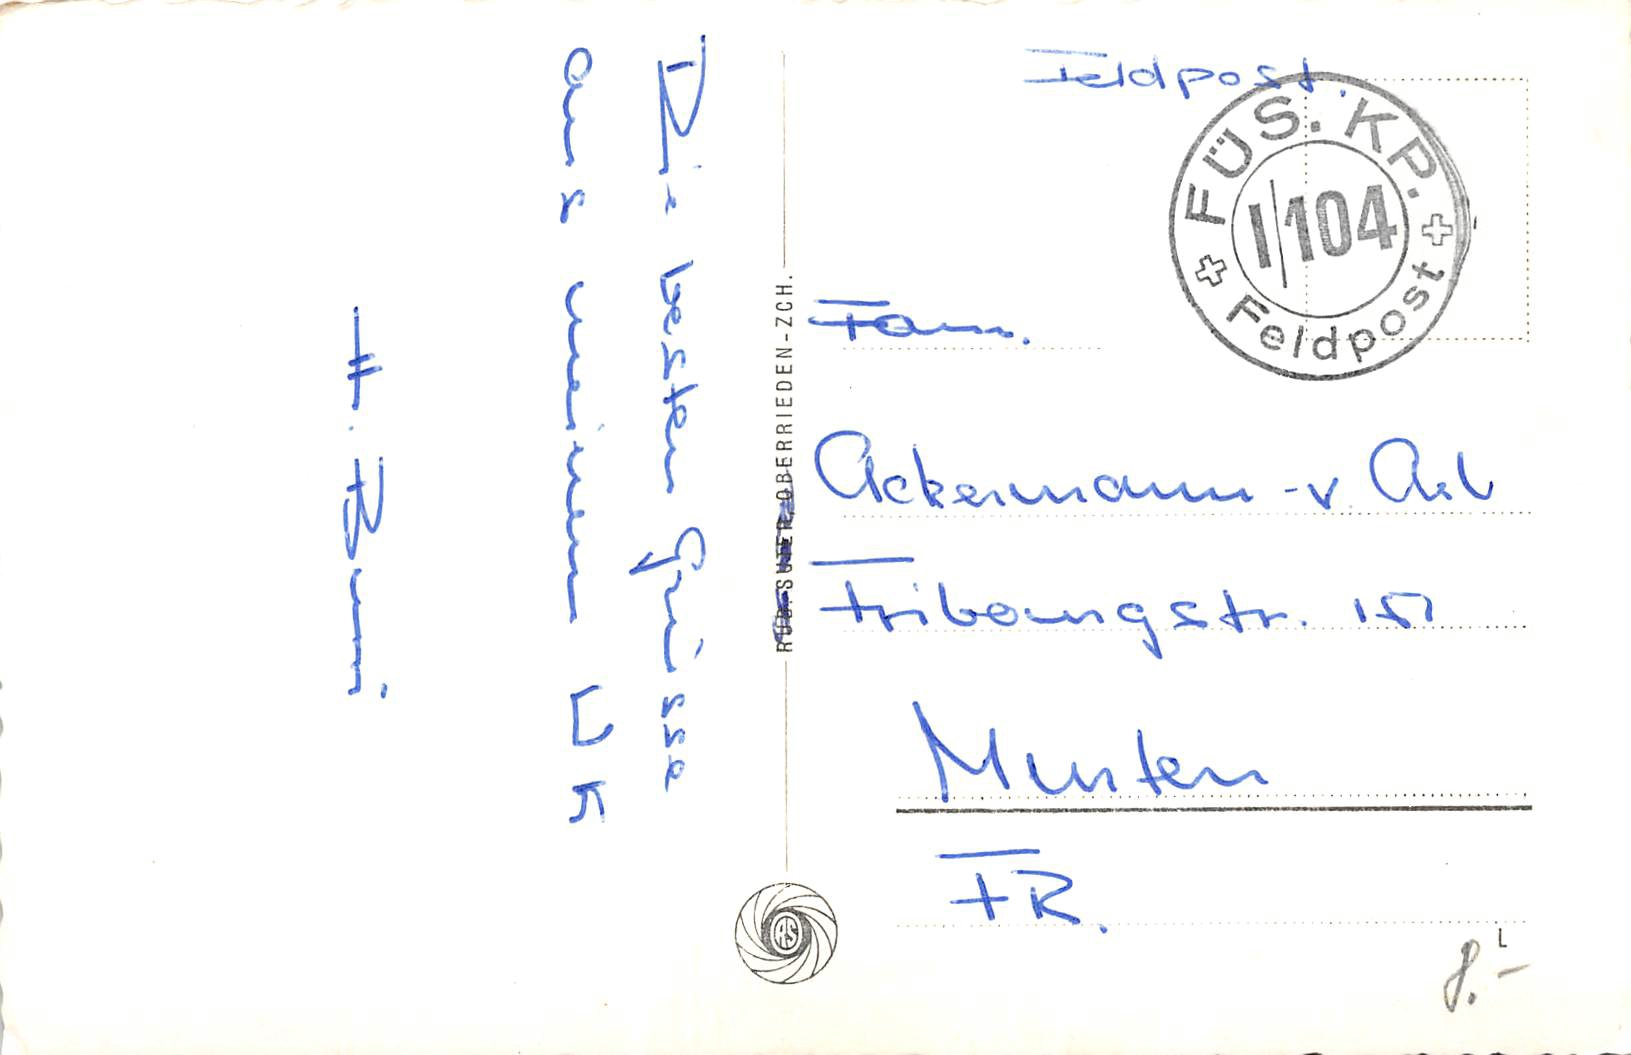 Die besten Grüsse
aus meinem WK
Feldpost.
FÜS. KP.
I/104
Feldpost
Fam.
Ackermann - v Arb
Fribourgstr. 151
Murten
FR.
RUD. SUTER, OBERRIEDEN-ZCH.
RS
L
8.–